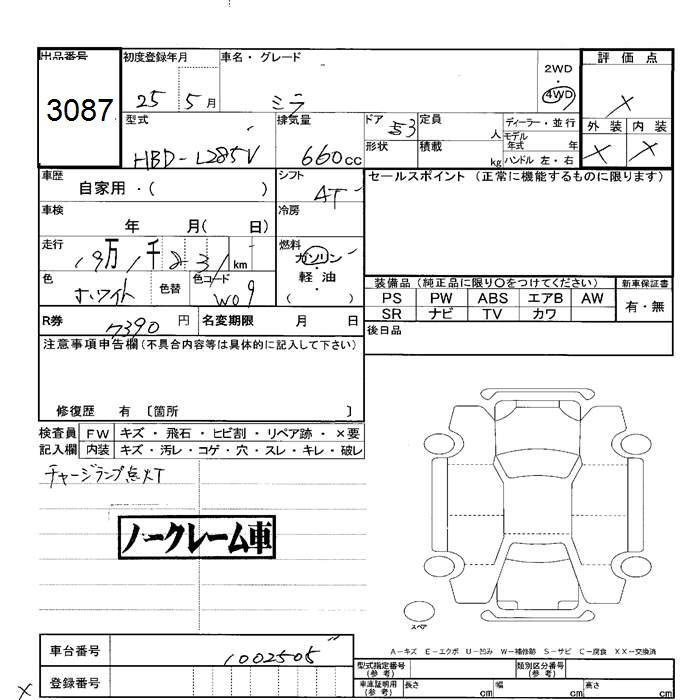 出品番号
3087
初度登録年月
25 5月
車名・グレード
ミラ
2WD
・
4WD
評価点
×
外装 内装
× ×
型式
HBD-L285V
排気量
660cc
ドア 53
形状
定員 人
積載 kg
ディーラー・並行
モデル年式 年
ハンドル 左・右
車歴
自家用・( )
シフト
AT
セールスポイント (正常に機能するものに限ります)
車検
年 月( 日)
冷房
走行
19万1千231km
燃料
ガソリン
・
軽油
・
( )
色
ホワイト
色替
色コード
W09
装備品 (純正品に限り〇をつけてください)
新車保証書
PS PW ABS エアB AW
有・無
SR ナビ TV カワ
R券 7390 円
名変期限 月 日
後日品
注意事項申告欄(不具合内容等は具体的に記入して下さい)
修復歴 有 〔箇所 〕
検査員 FW キズ・飛石・ヒビ割・リペア跡・×要
記入欄 内装 キズ・汚レ・コゲ・穴・スレ・キレ・破レ
チャージランプ点灯
ノークレーム車
スペア
A-キズ E-エクボ U-凹み W-補修跡 S-サビ C-腐食 XX-交換済
車台番号 1002505
登録番号
型式指定番号(参考)
類別区分番号(参考)
車庫証明用(参考) 長さ cm 幅 cm 高さ cm
×